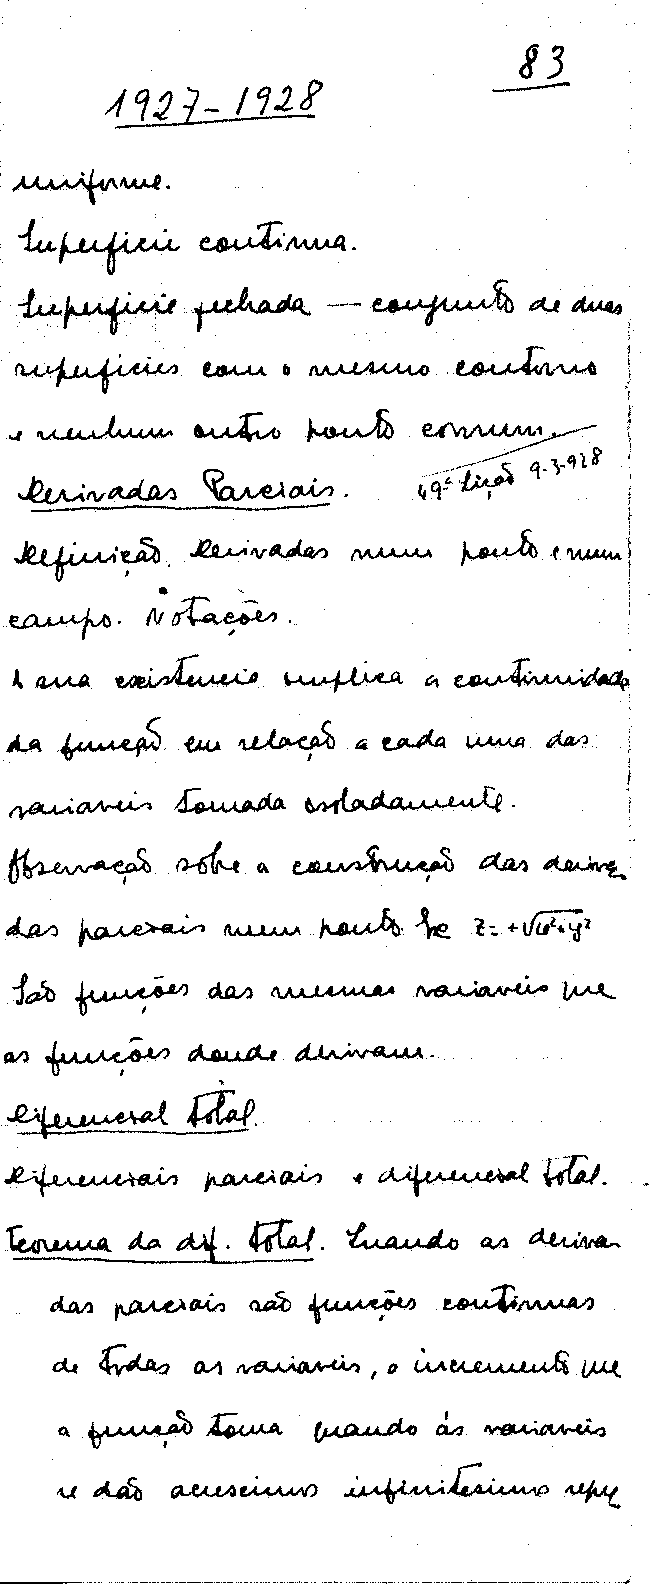 83
1927-1928
uniforme.
Superficie continua.
Superficie fechada — conjunto de duas
superficies com o mesmo contorno
e nenhum outro ponto comum.
Derivadas Parciais. 49ª Lição 9-3-928
Definição. Derivadas num ponto e num
campo. Notações.
A sua existencia implica a continuidade
da função em relação a cada uma das
variaveis tomada isoladamente.
Observação sobre a construção das deriva-
das parciais num ponto z = +√x²+y²
São funções das mesmas variaveis que
as funções donde derivam.
Diferencial Total.
Diferenciais parciais e diferencial total.
Teorema da dif. Total. Quando as deriva-
das parciais são funções continuas
de todas as variaveis, o incremento que
a função toma quando ás variaveis
se dão acrescimos infinitesimos